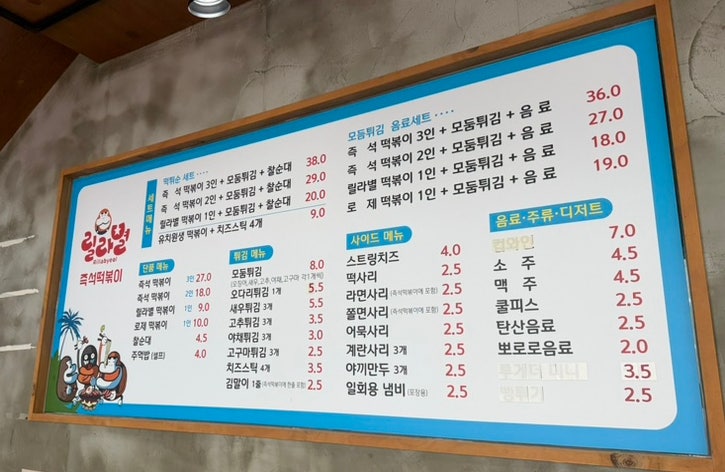 릴라별
Rillabyeol
즉석떡볶이
세트메뉴
떡튀순 세트 ····
즉 석 떡볶이 3인 + 모둠튀김 + 찰순대 38.0
즉 석 떡볶이 2인 + 모둠튀김 + 찰순대 29.0
릴라별 떡볶이 1인 + 모둠튀김 + 찰순대 20.0
유치원생 떡볶이 + 치즈스틱 4개 9.0
모둠튀김 음료세트 ····
즉 석 떡볶이 3인 + 모둠튀김 + 음 료 36.0
즉 석 떡볶이 2인 + 모둠튀김 + 음 료 27.0
릴라별 떡볶이 1인 + 모둠튀김 + 음 료 18.0
로 제 떡볶이 1인 + 모둠튀김 + 음 료 19.0
단품 메뉴
즉석 떡볶이 3인 27.0
즉석 떡볶이 2인 18.0
릴라별 떡볶이 1인 9.0
로제 떡볶이 1인 10.0
찰순대 4.5
주먹밥 (셀프) 4.0
튀김 메뉴
모둠튀김 8.0
(오징어,새우,고추,야채,고구마 각1개씩)
오다리튀김 1개 5.5
새우튀김 3개 5.5
고추튀김 3개 3.5
야채튀김 3개 3.0
고구마튀김 3개 2.5
치즈스틱 4개 3.5
김말이 1줄 (즉석떡볶이에 한줄 포함) 2.5
사이드 메뉴
스트링치즈 4.0
떡사리 2.5
라면사리 (즉석떡볶이에 포함) 2.5
쫄면사리 (즉석떡볶이에 포함) 2.5
어묵사리 2.5
계란사리 3개 2.5
야끼만두 3개 2.5
일회용 냄비 (포장용) 2.5
음료·주류·디저트
컵와인 7.0
소 주 4.5
맥 주 4.5
쿨피스 2.5
탄산음료 2.5
뽀로로음료 2.0
3.5
2.5